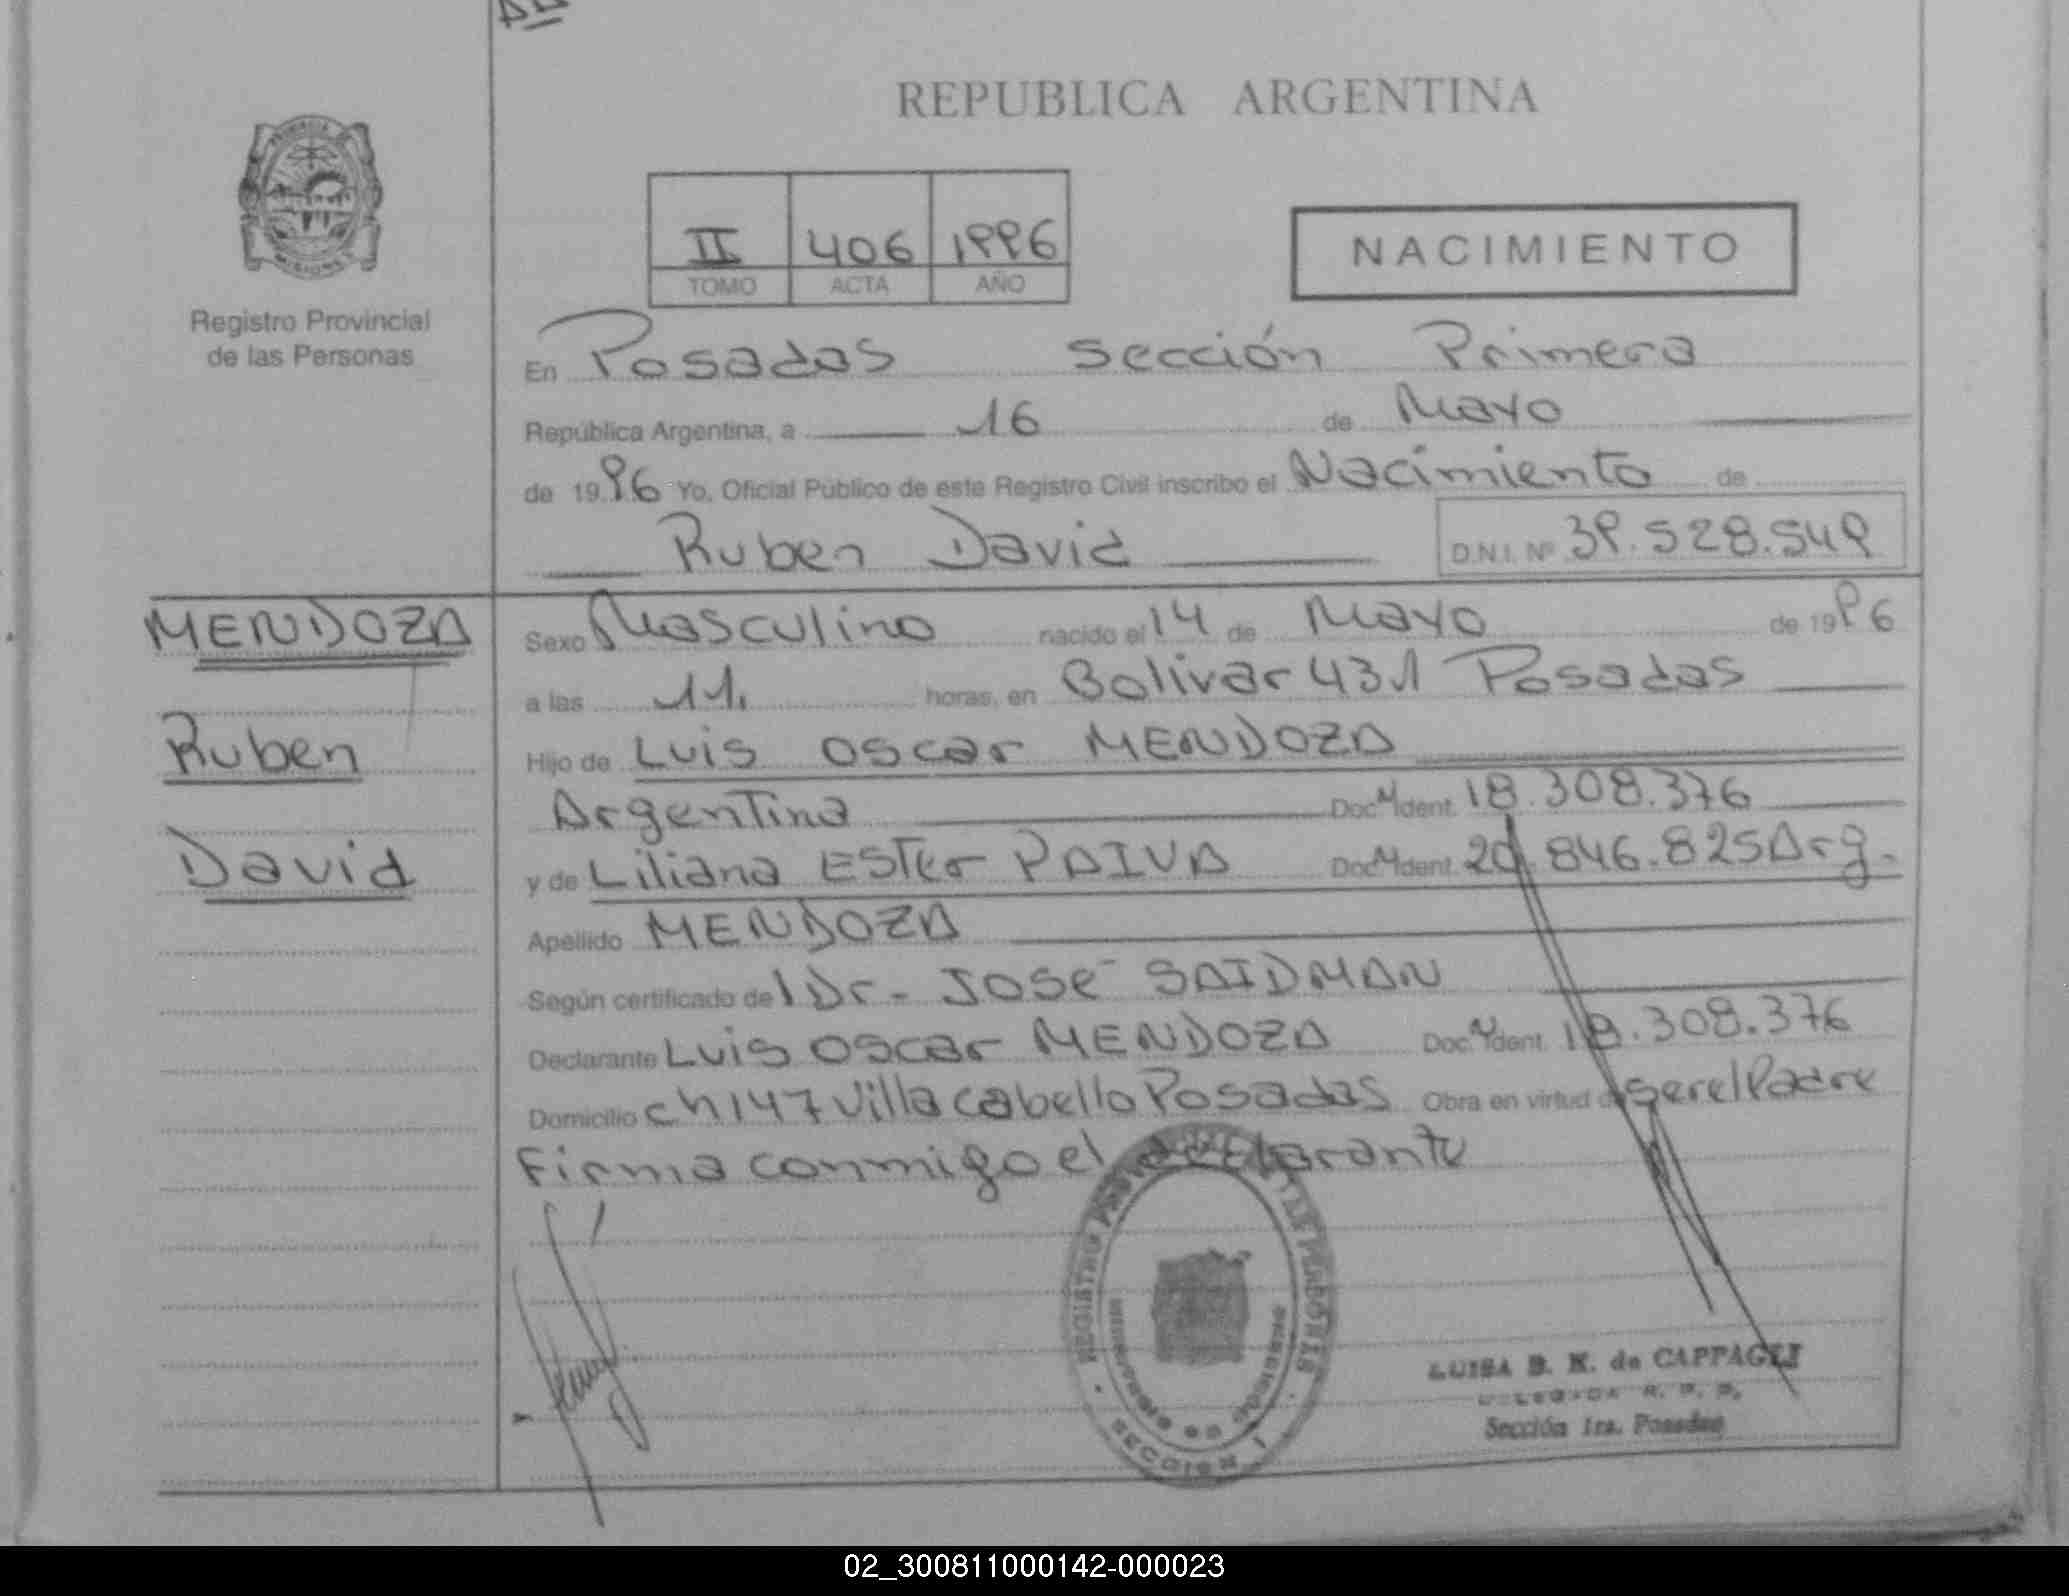 REPUBLICA ARGENTINA
PROVINCIA DE
MISIONES
Registro Provincial
de las Personas
II 406 1996
TOMO ACTA AÑO
NACIMIENTO
En Posadas Sección Primera
República Argentina, a 16 de Mayo
de 1996 Yo, Oficial Público de este Registro Civil inscribo el Nacimiento de
Ruben David D.N.I. Nº 39.528.549
MENDOZA
Ruben
David
Sexo Masculino nacido el 14 de Mayo de 1996
a las 11. horas, en Bolivar 431 Posadas
Hijo de Luis Oscar MENDOZA
Argentina Doc. N Ident. 18.308.376
y de Liliana ESTer PAIVA Doc. N Ident. 20.846.825 Arg.
Apellido MENDOZA
Según certificado de l Dr- JOSÉ SAIDMAN
Declarante Luis Oscar MENDOZA Doc. N Ident. 18.308.376
Domicilio ch 147 Villa Cabello Posadas Obra en virtud de ser el Padre
Firma conmigo el declarante
REGISTRO PROVINCIAL DE LAS PERSONAS
SECCION I
LUISA B. K. de CAPPAGLI
DELEGADA R. P. P.
Sección 1ra. Posadas
02_300811000142-000023